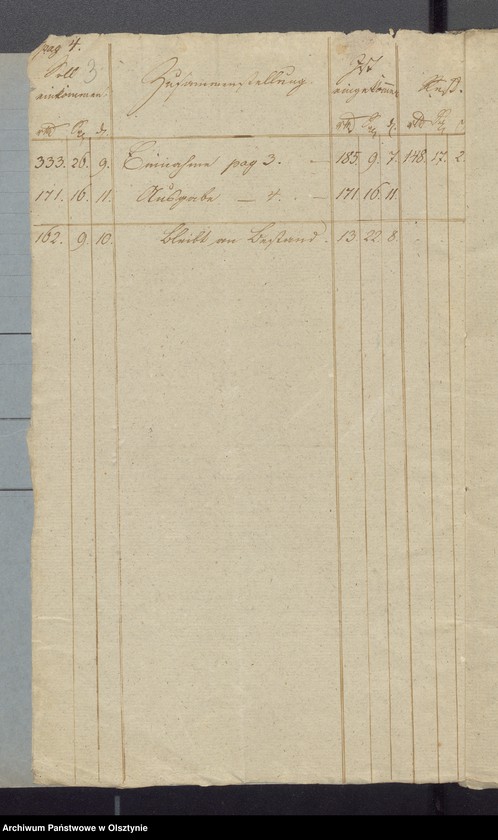 pag 4.
Soll 3 Zusammenstellung. Ist
einkommen. eingekommen Rest.
rtl Sg. d. rtl Sg. d. rtl Sg. d.
333. 26. 9. Einnahme pag 3. — 185. 9. 7. 148. 17. 2.
171. 16. 11. Ausgabe — 4. — 171. 16. 11.
162. 9. 10. bleibt an Bestand. 13. 22. 8.
Archiwum Państwowe w Olsztynie